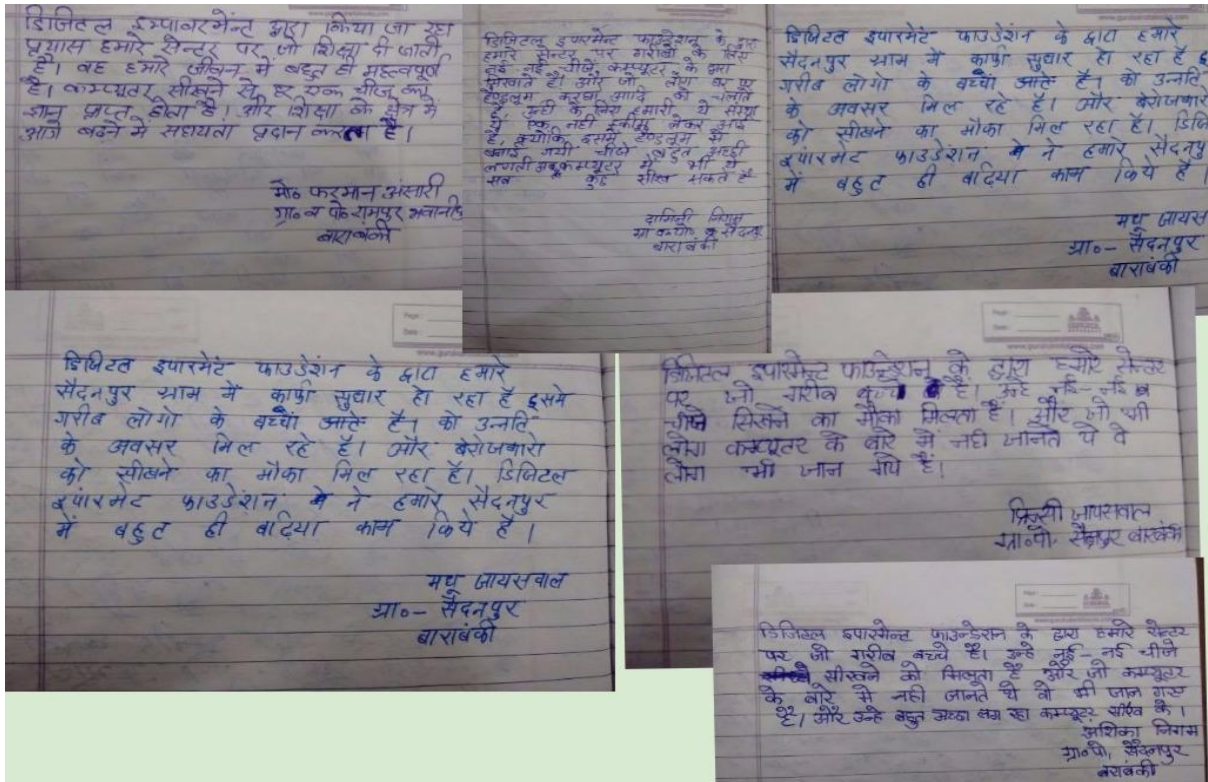 डिजिटल इम्पावरमेन्ट द्वारा किया जा रहा
प्रयास हमारे सेन्टर पर जो शिक्षा दी जाती
है। वह हमारे जीवन में बहुत ही महत्वपूर्ण
है। कम्प्यूटर सीखने से हर एक चीज का
ज्ञान प्राप्त होता है। और शिक्षा के क्षेत्र में
आगे बढ़ने में सहायता प्रदान करता है।
मो० फरमान अंसारी
ग्रा० व पो० रामपुर भवानीपुर
बाराबंकी
डिजिटल इपारमेन्ट फाउन्डेशन के द्वारा
हमारे सेन्टर पर गरीबों के लिए
नई नई चीजे कम्प्यूटर के द्वारा
सिखाते है। और जो लोग घर पर
हैण्डलूम करघा आदि को चलाते
है उन्ही के लिए हमारी ये संस्था
है, एक नही स्कीम लेकर आई
है, क्योंकि इसमे हैण्डलूम से
बनाई गयी चीजे बहुत अच्छी
लगती अब कम्प्यूटर में भी ये
सब कुछ सीख सकते है
दामिनी निगम
ग्रा व पो० सैदनपुर
बाराबंकी
डिजिटल इपारमेंट फाउडेशन के द्वारा हमारे
सैदनपुर ग्राम में काफी सुधार हो रहा है इ
गरीब लोगो के बच्चों आते है। को उन्नति
के अवसर मिल रहे है। और बेरोजकारो
को सीखने का मौका मिल रहा है। डिजि
इपारमेट फाउडेशन ने हमारे सैदनपु
में बहुट ही बढ़िया काम किये है।
मधू जायस
ग्रा०- सैदनपुर
बाराबंकी
डिजिटल इपारमेंट फाउडेशन के द्वारा हमारे
सैदनपुर ग्राम में काफी सुधार हो रहा है इसमे
गरीब लोगो के बच्चों आते है। को उन्नति
के अवसर मिल रहे है। और बेरोजकारो
को सीखने का मौका मिल रहा है। डिजिटल
इपारमेट फाउडेशन ने हमारे सैदनपुर
में बहुट ही बढ़िया काम किये है।
मधू जायसवाल
ग्रा०- सैदनपुर
बाराबंकी
डिजिटल इपारमेन्ट फाउन्डेशन के द्वारा हमारे सेन्टर
पर जो गरीब बच्चे है। उन्हे नई-नई
चीजे सिखने का मौका मिलता है। और जो भी
लोग कम्प्यूटर के बारे मे नही जानते थे वे
लोग भी जान गये हैं।
प्रिन्सी जायसवाल
ग्रा०पो. सैदनपुर बाराबंकी
डिजिटल इपारमेन्ट फाउन्डेशन के द्वारा हमारे सेन्टर
पर जो गरीब बच्चे है। उन्हे नई-नई चीजे
सीखने को मिलता है और जो कम्प्यूटर
के बारे मे नही जानते थे वो भी जान गए
है। और उन्हे बहुत अच्छा लग रहा कम्प्यूटर सीख के।
अंशिका निगम
ग्रा०पो, सैदनपुर
बाराबंकी